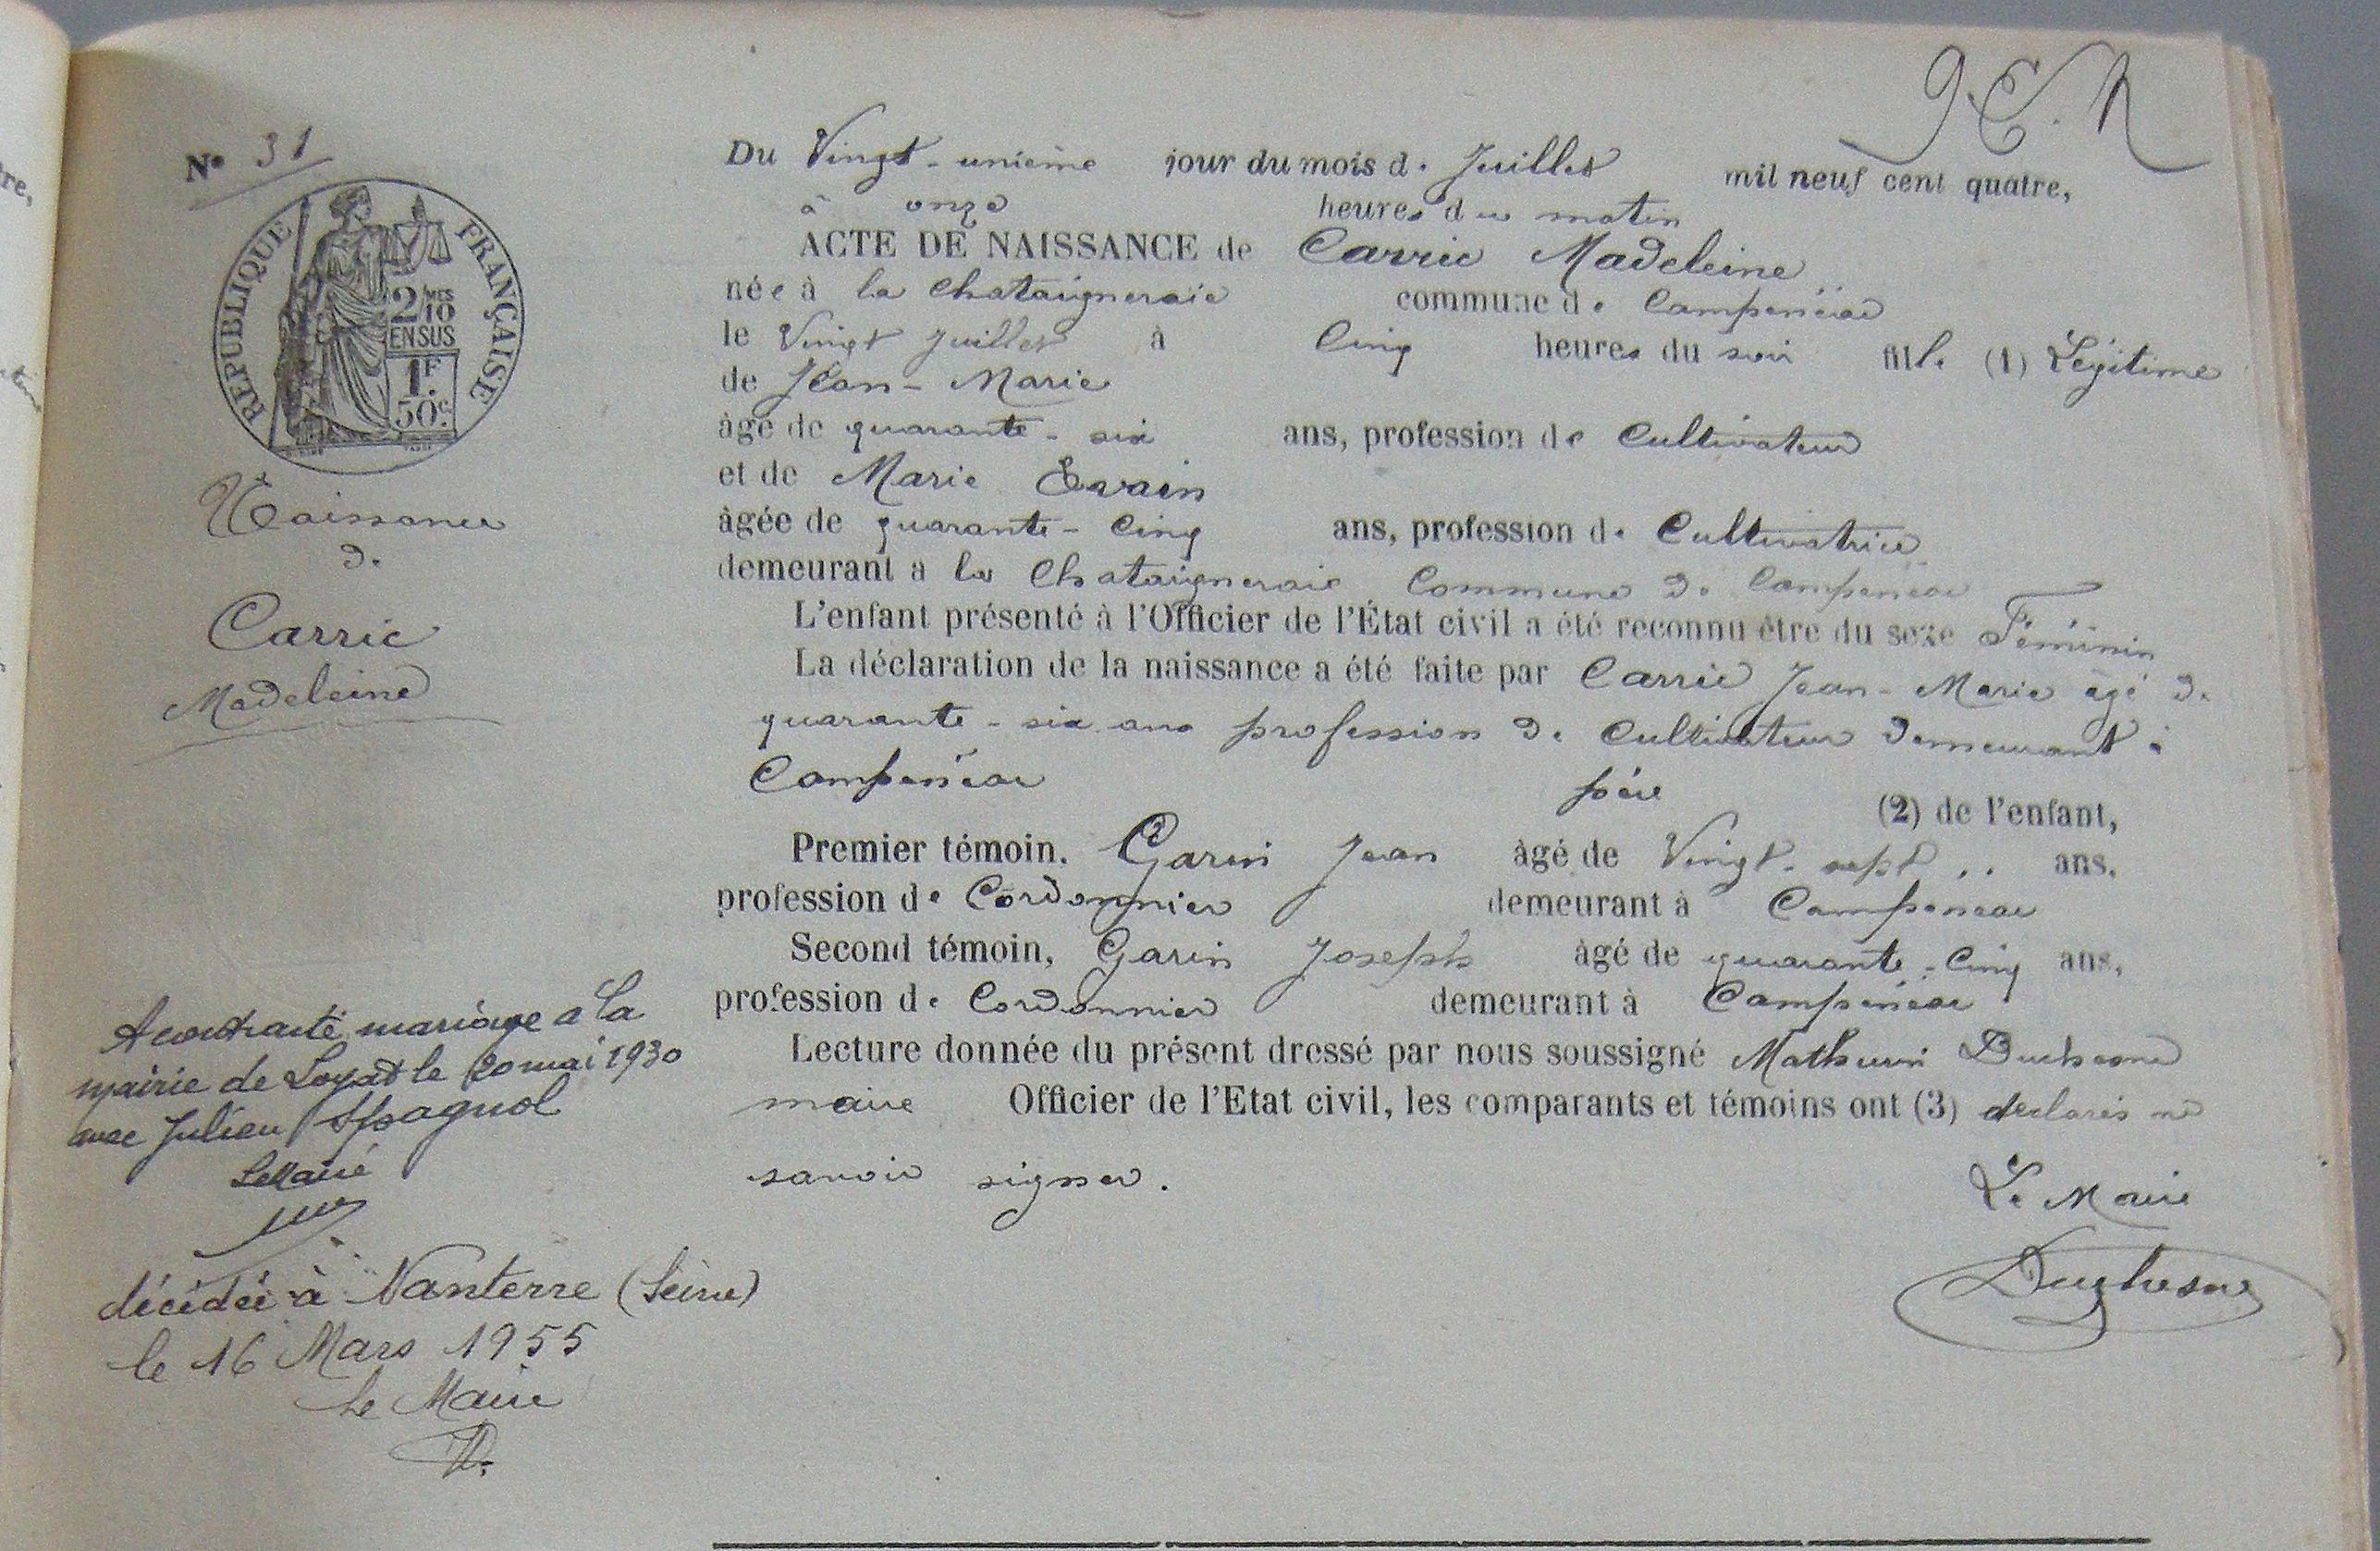 N° 31
RÉPUBLIQUE FRANÇAISE
2/10 MES
EN SUS
1F.
50c.
Naissance
de
Carric
Madeleine
A contracté mariage à la
mairie de Loyat le 20 mai 1930
avec Julien Spagnol
Le Maire
décédée à Nanterre (Seine)
le 16 Mars 1955
Le Maire
Du Vingt-unième jour du mois de Juillet mil neuf cent quatre,
à onze heures du matin
ACTE DE NAISSANCE de Carric Madeleine
née à la Chataigneraie commune de Campénéac
le Vingt Juillet à Cinq heures du soir fille (1) Légitime
de Jean-Marie
âgé de quarante-six ans, profession de Cultivateur
et de Marie Evain
âgée de quarante-Cinq ans, profession de Cultivatrice
demeurant à la Chataigneraie Commune de Campénéac
L'enfant présenté à l'Officier de l'État civil a été reconnu être du sexe Féminin
La déclaration de la naissance a été faite par Carric Jean-Marie âgé de
quarante-six ans profession de Cultivateur demeurant à
Campénéac père (2) de l'enfant,
Premier témoin. Garin Jean âgé de Vingt-sept .. ans.
profession de Cordonnier demeurant à Campeneac
Second témoin, Garin Joseph âgé de quarante-Cinq ans,
profession de Cordonnier demeurant à Campénéac
Lecture donnée du présent dressé par nous soussigné Mathurin Duchesne
maire Officier de l'Etat civil, les comparants et témoins ont (3) declarés ne
savoir signer.
Le Maire
Duchesne